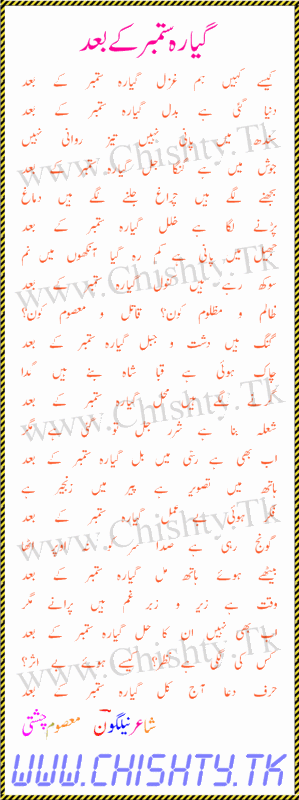 گیارہ ستمبر کے بعد
کیسے کہیں ہم غزل گیارہ ستمبر کے بعد
دنیا گئی ہے بدل گیارہ ستمبر کے بعد
سندھ میں پانی نہیں تیز روانی نہیں
جوش میں ہے گنگا جل گیارہ ستمبر کے بعد
بجھنے لگے ہیں چراغ جلنے لگے ہیں دماغ
پڑنے لگا ہے خلل گیارہ ستمبر کے بعد
جھیل میں پانی ہے کم رہ گیا آنکھوں میں نم
سوکھ رہے ہیں کنول گیارہ ستمبر کے بعد
ظالم و مظلوم کون؟ قاتل و معصوم کون؟
گنگ ہیں دشت و جبل گیارہ ستمبر کے بعد
چاک ہوئی ہے قبا شاہ بنے ہیں گدا
گیارہ ستمبر کے بعد
شعلہ بنا ہے شرر جل تو گئی ہے مگر
اب بھی ہے رسی میں بل گیارہ ستمبر کے بعد
ہاتھ میں تصویر ہے پیر میں زنجیر ہے
فکر ہوئی ہے عمل گیارہ ستمبر کے بعد
گونج رہی ہے صدا سر کو نہ اوپر اٹھا
بیٹھے ہوئے ہاتھ مل گیارہ ستمبر کے بعد
وقت ہے زیر و زبر غم ہیں پرانے مگر
اب بھی نہیں ان کا حل گیارہ ستمبر کے بعد
کس کی لگی ہے نظر؟ کیسے ہوئے بے اثر؟
حرف دعا آج کل گیارہ ستمبر کے بعد
شاعر نیلگون معصوم چشتی
WWW.CHISHTY.TK
www.Chishty.Tk
www.Chishty.Tk
www.Chishty.Tk
www.Chishty.Tk
www.Chishty.Tk